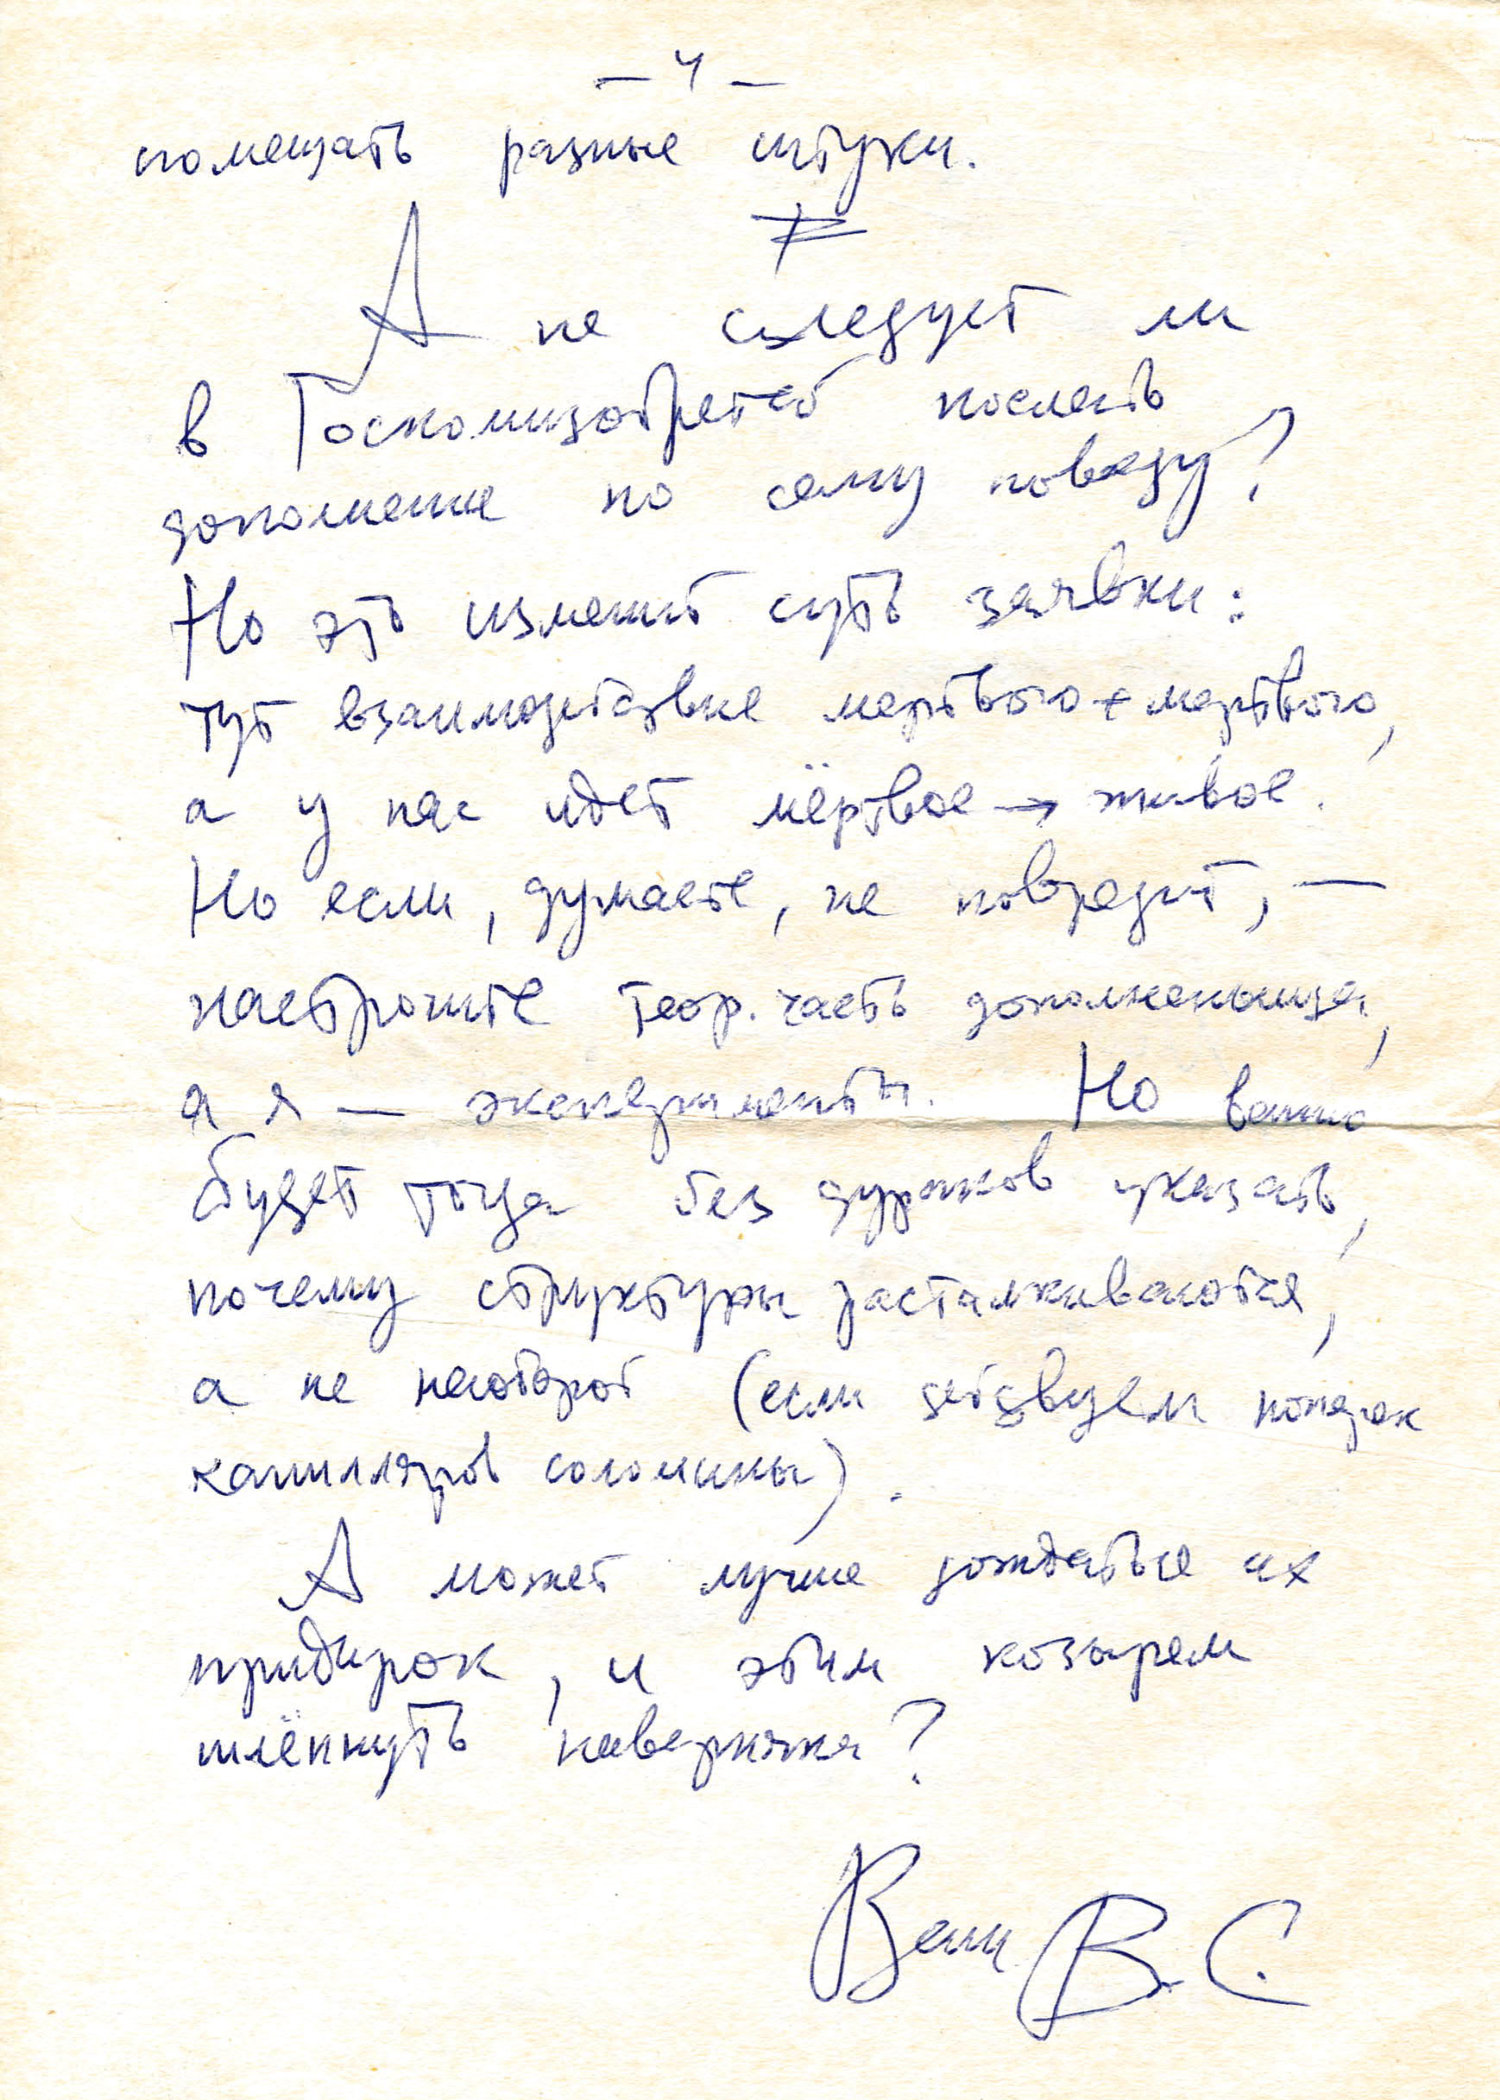 – 4 –
помещать разные штуки.
А не следует ли
в Госкомизобретеб послать
дополнение по сему поводу?
Но это изменит суть заявки:
тут взаимодействие мертвого + мертвого,
а у нас идет мёртвое → живое.
Но если, думаете, не повредит, —
настрочите теор. часть дополненьица,
а я — эксперименты. Но важно
будет тогда без дураков указать,
почему структуры расталкиваются,
а не наоборот (если действуем поперек
капилляров соломины).
А может лучше дождаться их
придирок, и этим козырем
шлёпнуть наверняка?
Ваш В. С.